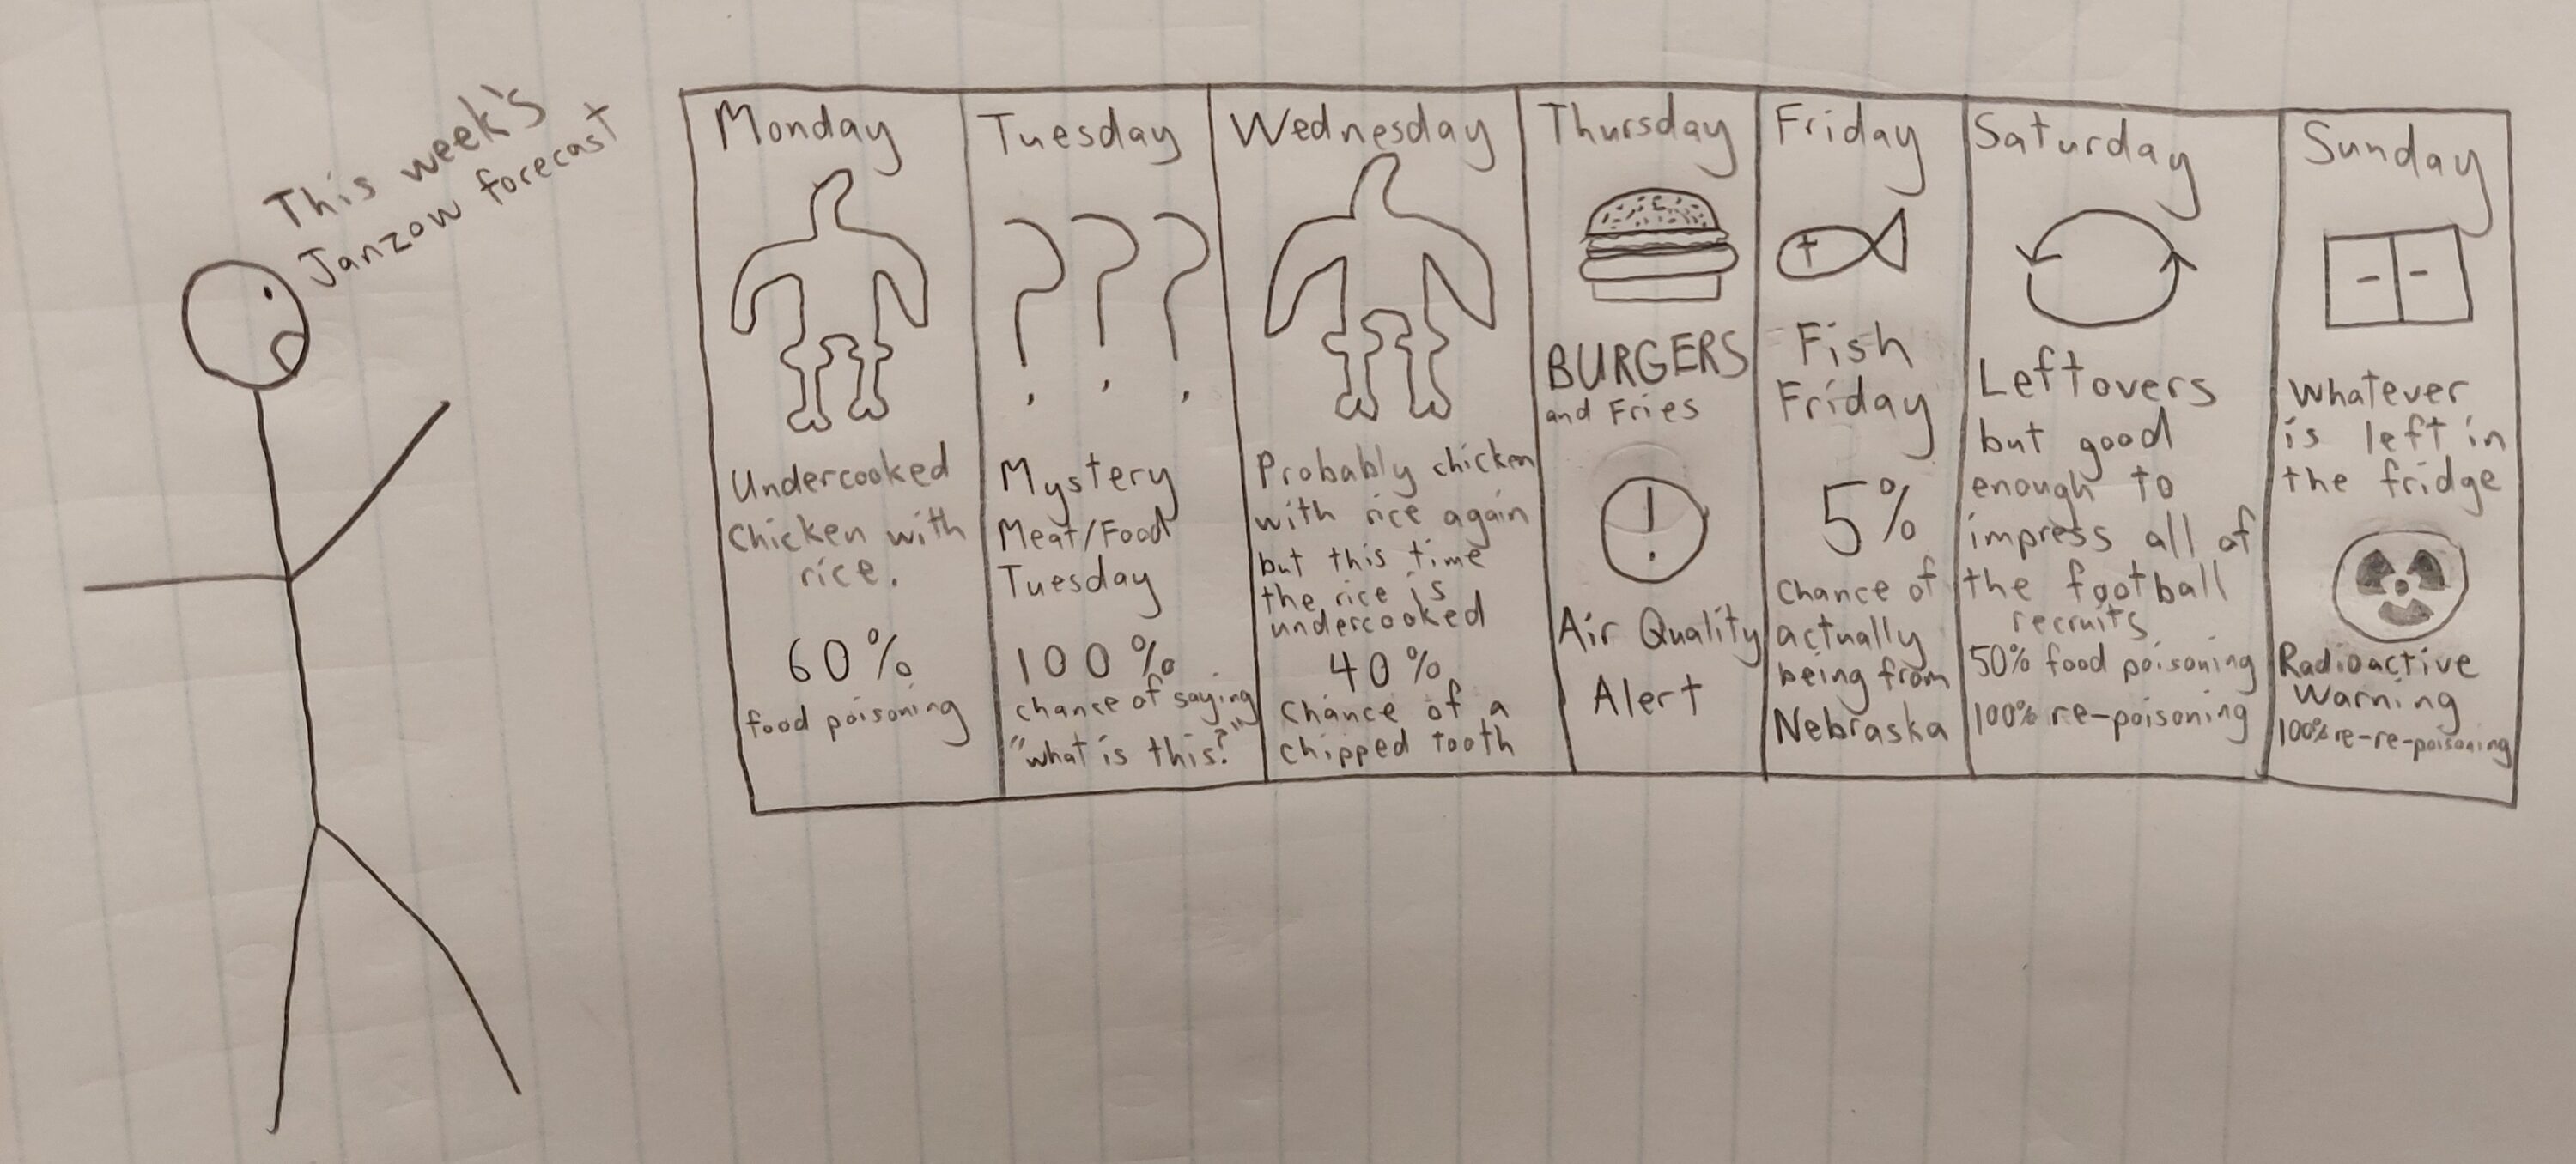 This week's
Janzow forecast
Monday
Undercooked
Chicken with
rice.
60%
food poisoning
Tuesday
???
Mystery
Meat/Food
Tuesday
100%
chance of saying
"what is this?"
Wednesday
Probably chicken
with rice again
but this time
the rice is
undercooked
40%
Chance of a
chipped tooth
Thursday
BURGERS
and Fries
!
Air Quality
Alert
Friday
Fish
Friday
5%
Chance of
actually
being from
Nebraska
Saturday
Leftovers
but good
enough to
impress all of
the football
recruits
50% food poisoning
100% re-poisoning
Sunday
Whatever
is left in
the fridge
Radioactive
Warning
100% re-re-poisoning